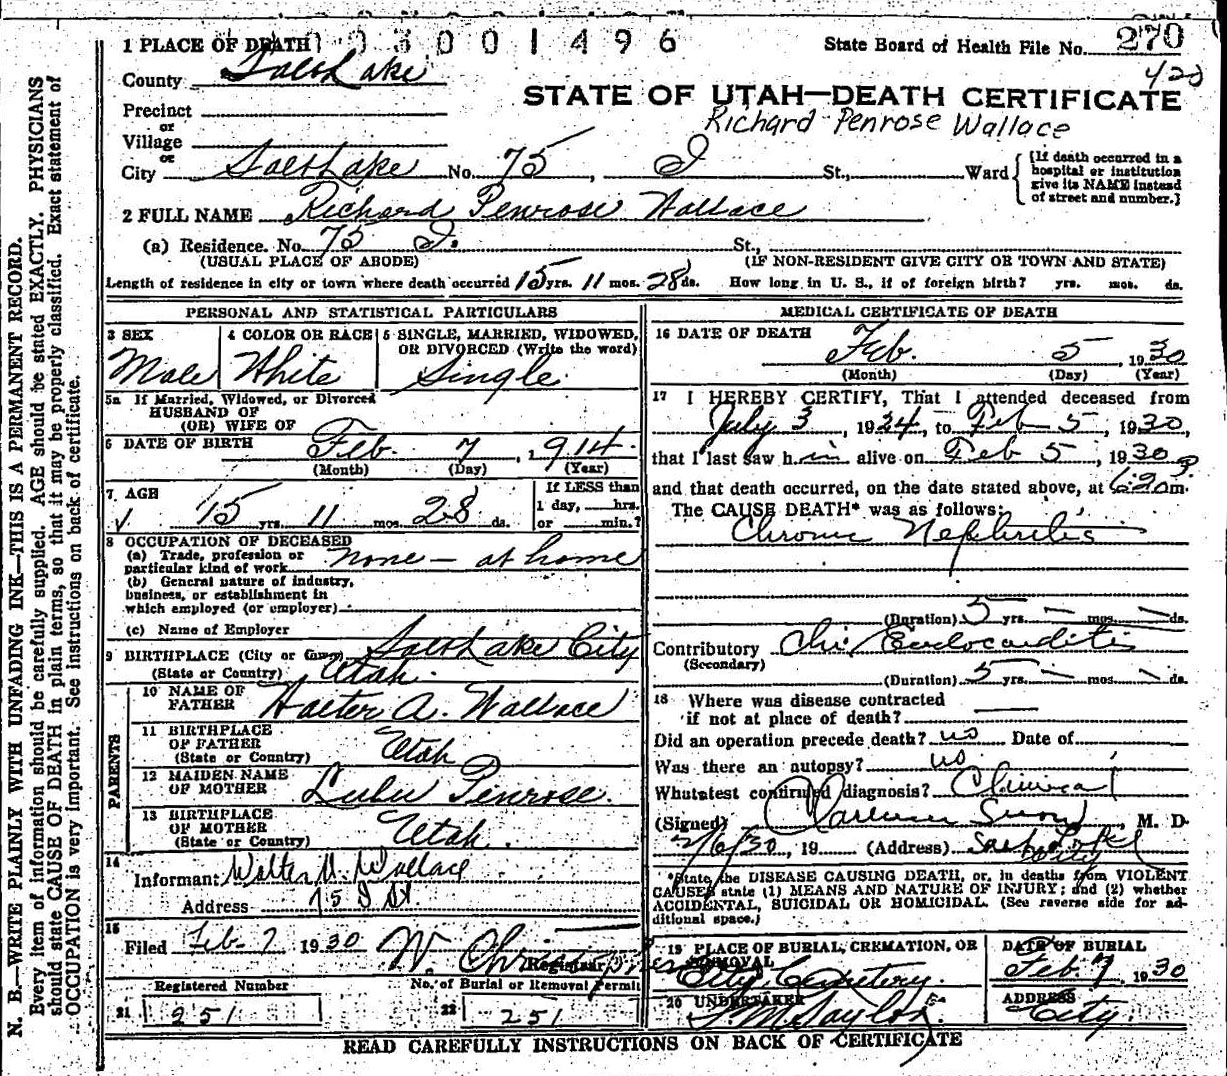 3 0 0 1 4 9 6
1 PLACE OF DEATH
State Board of Health File No. 270
420
County Salt Lake
STATE OF UTAH—DEATH CERTIFICATE
Richard Penrose Wallace
Precinct
or
Village
or
City Salt Lake No. 75, I St., Ward
[If death occurred in a
hospital or institution
give its NAME instead
of street and number.]
2 FULL NAME Richard Penrose Wallace
(a) Residence. No. 75 I. St.,
(USUAL PLACE OF ABODE) (IF NON-RESIDENT GIVE CITY OR TOWN AND STATE)
Length of residence in city or town where death occurred 15 yrs. 11 mos. 28 ds. How long in U. S., if of foreign birth? yrs. mos. ds.
PERSONAL AND STATISTICAL PARTICULARS
3 SEX
Male
4 COLOR OR RACE
White
5 SINGLE, MARRIED, WIDOWED,
OR DIVORCED (Write the word)
Single
5a If Married, Widowed, or Divorced
HUSBAND OF
(OR) WIFE OF
6 DATE OF BIRTH Feb. 7, 1914
(Month) (Day) (Year)
7 AGE
15 yrs. 11 mos. 28 ds.
If LESS than
1 day, hrs.
or min.?
8 OCCUPATION OF DECEASED
(a) Trade, profession or
particular kind of work none — at home
(b) General nature of industry,
business, or establishment in
which employed (or employer)
(c) Name of Employer
9 BIRTHPLACE (City or Town) Salt Lake City
(State or Country) Utah.
PARENTS
10 NAME OF
FATHER Walter A. Wallace
11 BIRTHPLACE
OF FATHER
(State or Country) Utah
12 MAIDEN NAME
OF MOTHER Lulu Penrose.
13 BIRTHPLACE
OF MOTHER
(State or Country) Utah.
14
Informant Walter A. Wallace
Address 75 I St
15
Filed Feb-7 1930
Registrar
Registered Number
21 251
No. of Burial or Removal Permit
22 251
MEDICAL CERTIFICATE OF DEATH
16 DATE OF DEATH
Feb. 5, 1930
(Month) (Day) (Year)
17 I HEREBY CERTIFY, That I attended deceased from
July 3, 1924, to Feb 5, 1930,
that I last saw him alive on Feb 5, 1930
and that death occurred, on the date stated above, at 6:20 P m.
The CAUSE DEATH* was as follows:
Chronic Nephritis
(Duration) 5 yrs. — mos. — ds.
Contributory Chr. Endocarditis
(Secondary)
(Duration) 5 yrs. — mos. — ds.
18 Where was disease contracted
if not at place of death?
Did an operation precede death? no Date of
Was there an autopsy? no
What test confirmed diagnosis? Clinical
(Signed) Clarence Snow, M. D.
2/6/30, 19 (Address) Salt Lake
City
*State the DISEASE CAUSING DEATH, or, in deaths from VIOLENT
CAUSES state (1) MEANS AND NATURE OF INJURY; and (2) whether
ACCIDENTAL, SUICIDAL OR HOMICIDAL. (See reverse side for ad-
ditional space.)
19 PLACE OF BURIAL, CREMATION, OR
REMOVAL
City Cemetery.
DATE OF BURIAL
Feb. 7, 1930
20 UNDERTAKER
S. M. Taylor
ADDRESS
City.
READ CAREFULLY INSTRUCTIONS ON BACK OF CERTIFICATE
N. B.—WRITE PLAINLY WITH UNFADING INK—THIS IS A PERMANENT RECORD.
Every item of information should be carefully supplied. AGE should be stated EXACTLY. PHYSICIANS
should state CAUSE OF DEATH in plain terms, so that it may be properly classified. Exact statement of
OCCUPATION is very important. See instructions on back of certificate.